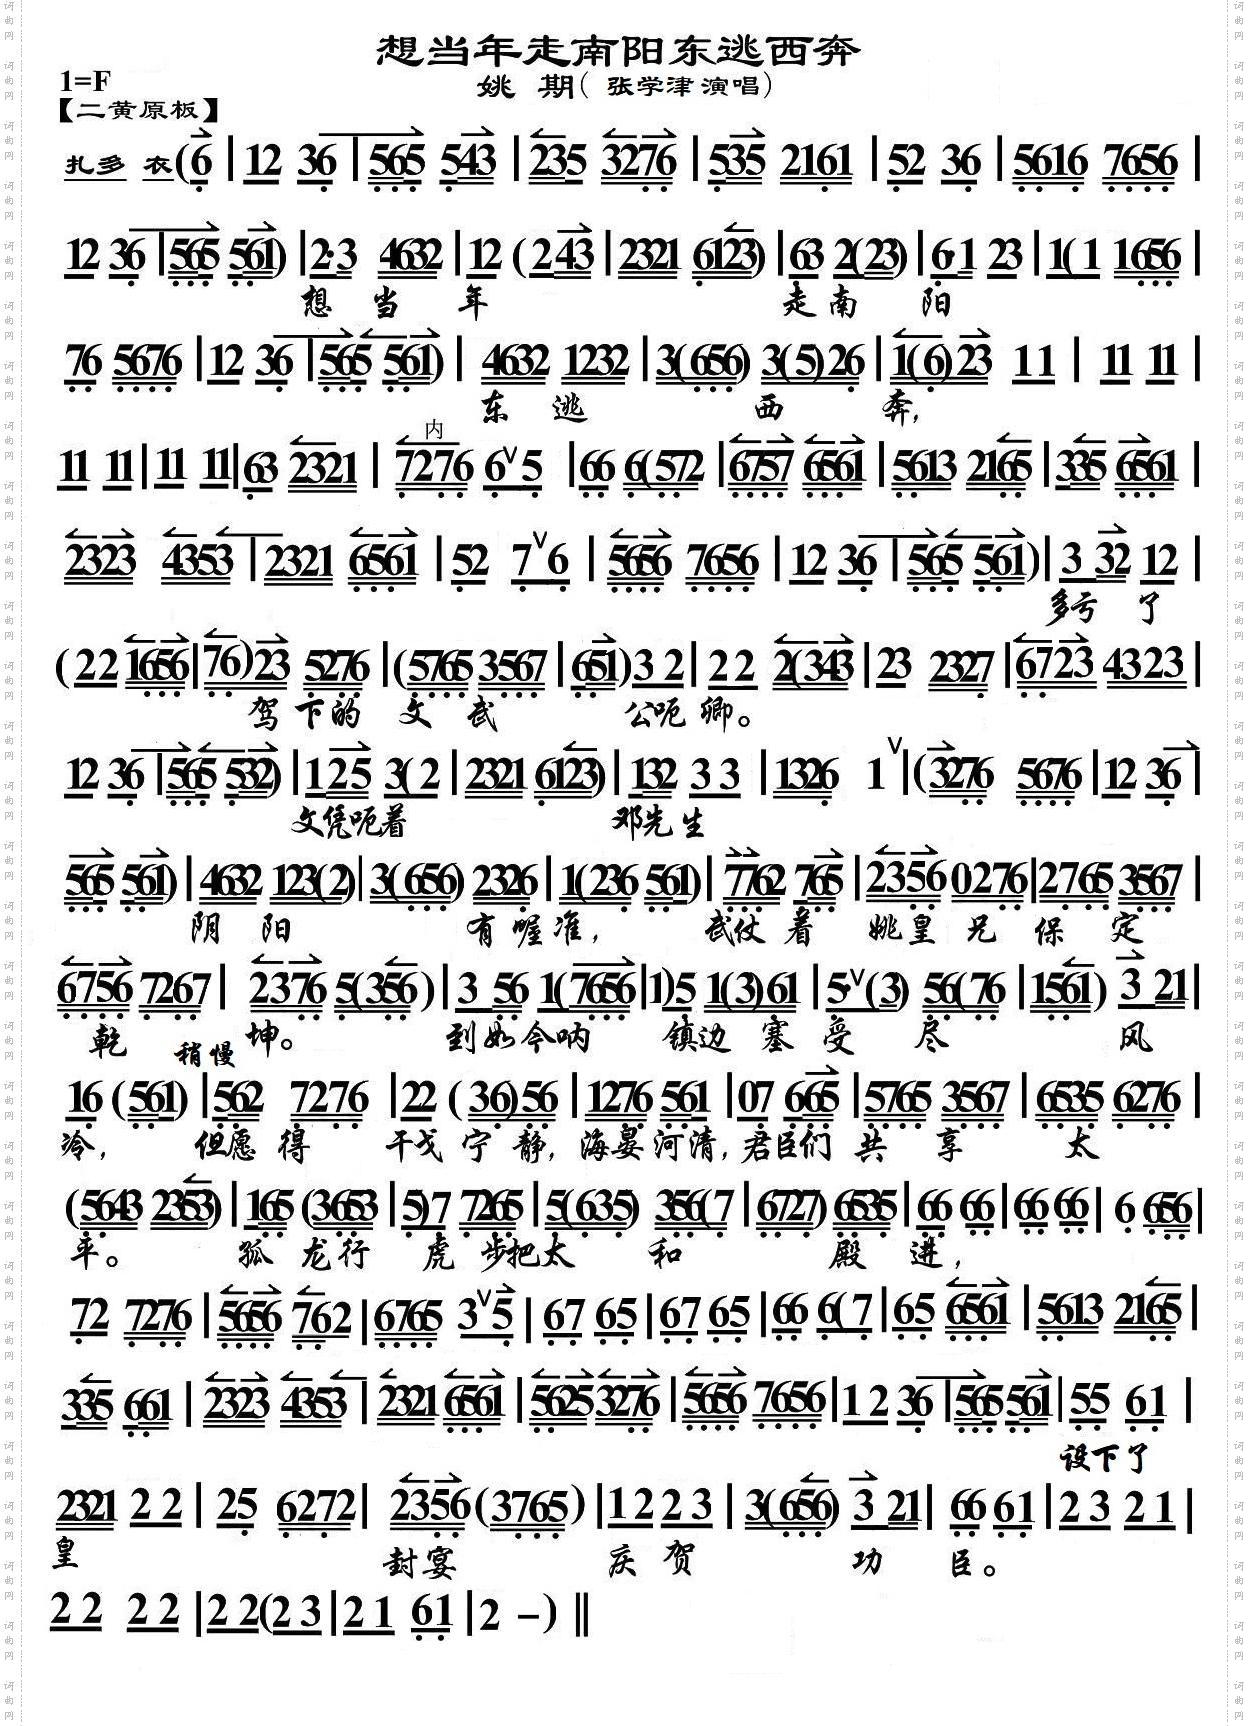 想当年走南阳东逃西奔
1=F
姚 期(张学津演唱)
【二黄原板】
扎多 衣(6 | 12 36 | 565 543 | 235 3276 | 535 2161 | 52 36 | 5616 7656 |
12 36 | 565 561) | 2·3 4632 | 12 (243 | 2321 6123) | 63 2(23) | 6·1 23 | 1(1 1656 |
想 当 年 走 南 阳
76 5676 | 12 36 | 565 561) | 4632 1232 | 3(656) 3(5)26 | 1(6)23 11 | 11 11 |
东 逃 西 奔,
内
11 11 | 11 11 | 63 2321 | 7276 6∨5 | 66 6(572 | 6757 6561 | 5613 2165 | 335 6561 |
2323 4353 | 2321 6561 | 52 7∨6 | 5656 7656 | 12 36 | 565 561) | 3 32 12 |
多亏 了
(22 1656 | 76)23 5276 | (5765 3567 | 651)32 | 22 2(343 | 23 2327 | 6723 4323 |
驾 下的 文 武 公呃 卿。
12 36 | 565 532) | 125 3(2 | 2321 6123) | 132 33 | 1326 1∨ | (3276 5676 | 12 36 |
文凭呃着 邓先生
565 561) | 4632 123(2) | 3(656) 2326 | 1(236 561) | 7762 765 | 2356 0276 | 2765 3567 |
阴 阳 有 喔 准, 武仗 着 姚 皇 兄 保 定
6756 7267 | 2376 5(356) | 3 56 1(7656 | 1)5 1(3)61 | 5·∨(3) 56(76 | 1561) 3 21 |
乾 稍慢 坤。 到如今呐 镇边 塞 受 尽 风
16 (561) | 562 7276 | 22 (36)56 | 1276 561 | 07 665 | 5765 3567 | 6535 6276 |
冷, 但愿 得 干戈 宁 静, 海晏河清, 君臣们 共 享 太
(5643 2353) | 165 (3653 | 5)7 7265 | 5(635) 356(7 | 6727) 6535 | 66 66 | 66 66 | 6 656 |
平。 孤 龙行 虎 步把太 和 殿 进,
72 7276 | 5656 762 | 6765 3∨5 | 67 65 | 67 65 | 66 6(7 | 65 6561 | 5613 2165 |
335 661 | 2323 4353 | 2321 6561 | 5625 3276 | 5656 7656 | 12 36 | 565 561 | 55 61 |
设下了
2321 22 | 25 6272 | 2356 (3765) | 12 23 | 3(656) 3 21 | 66 61 | 23 21 |
皇 封宴 庆 贺 功 臣。
22 22 | 22(23 | 21 61 | 2 -) ‖